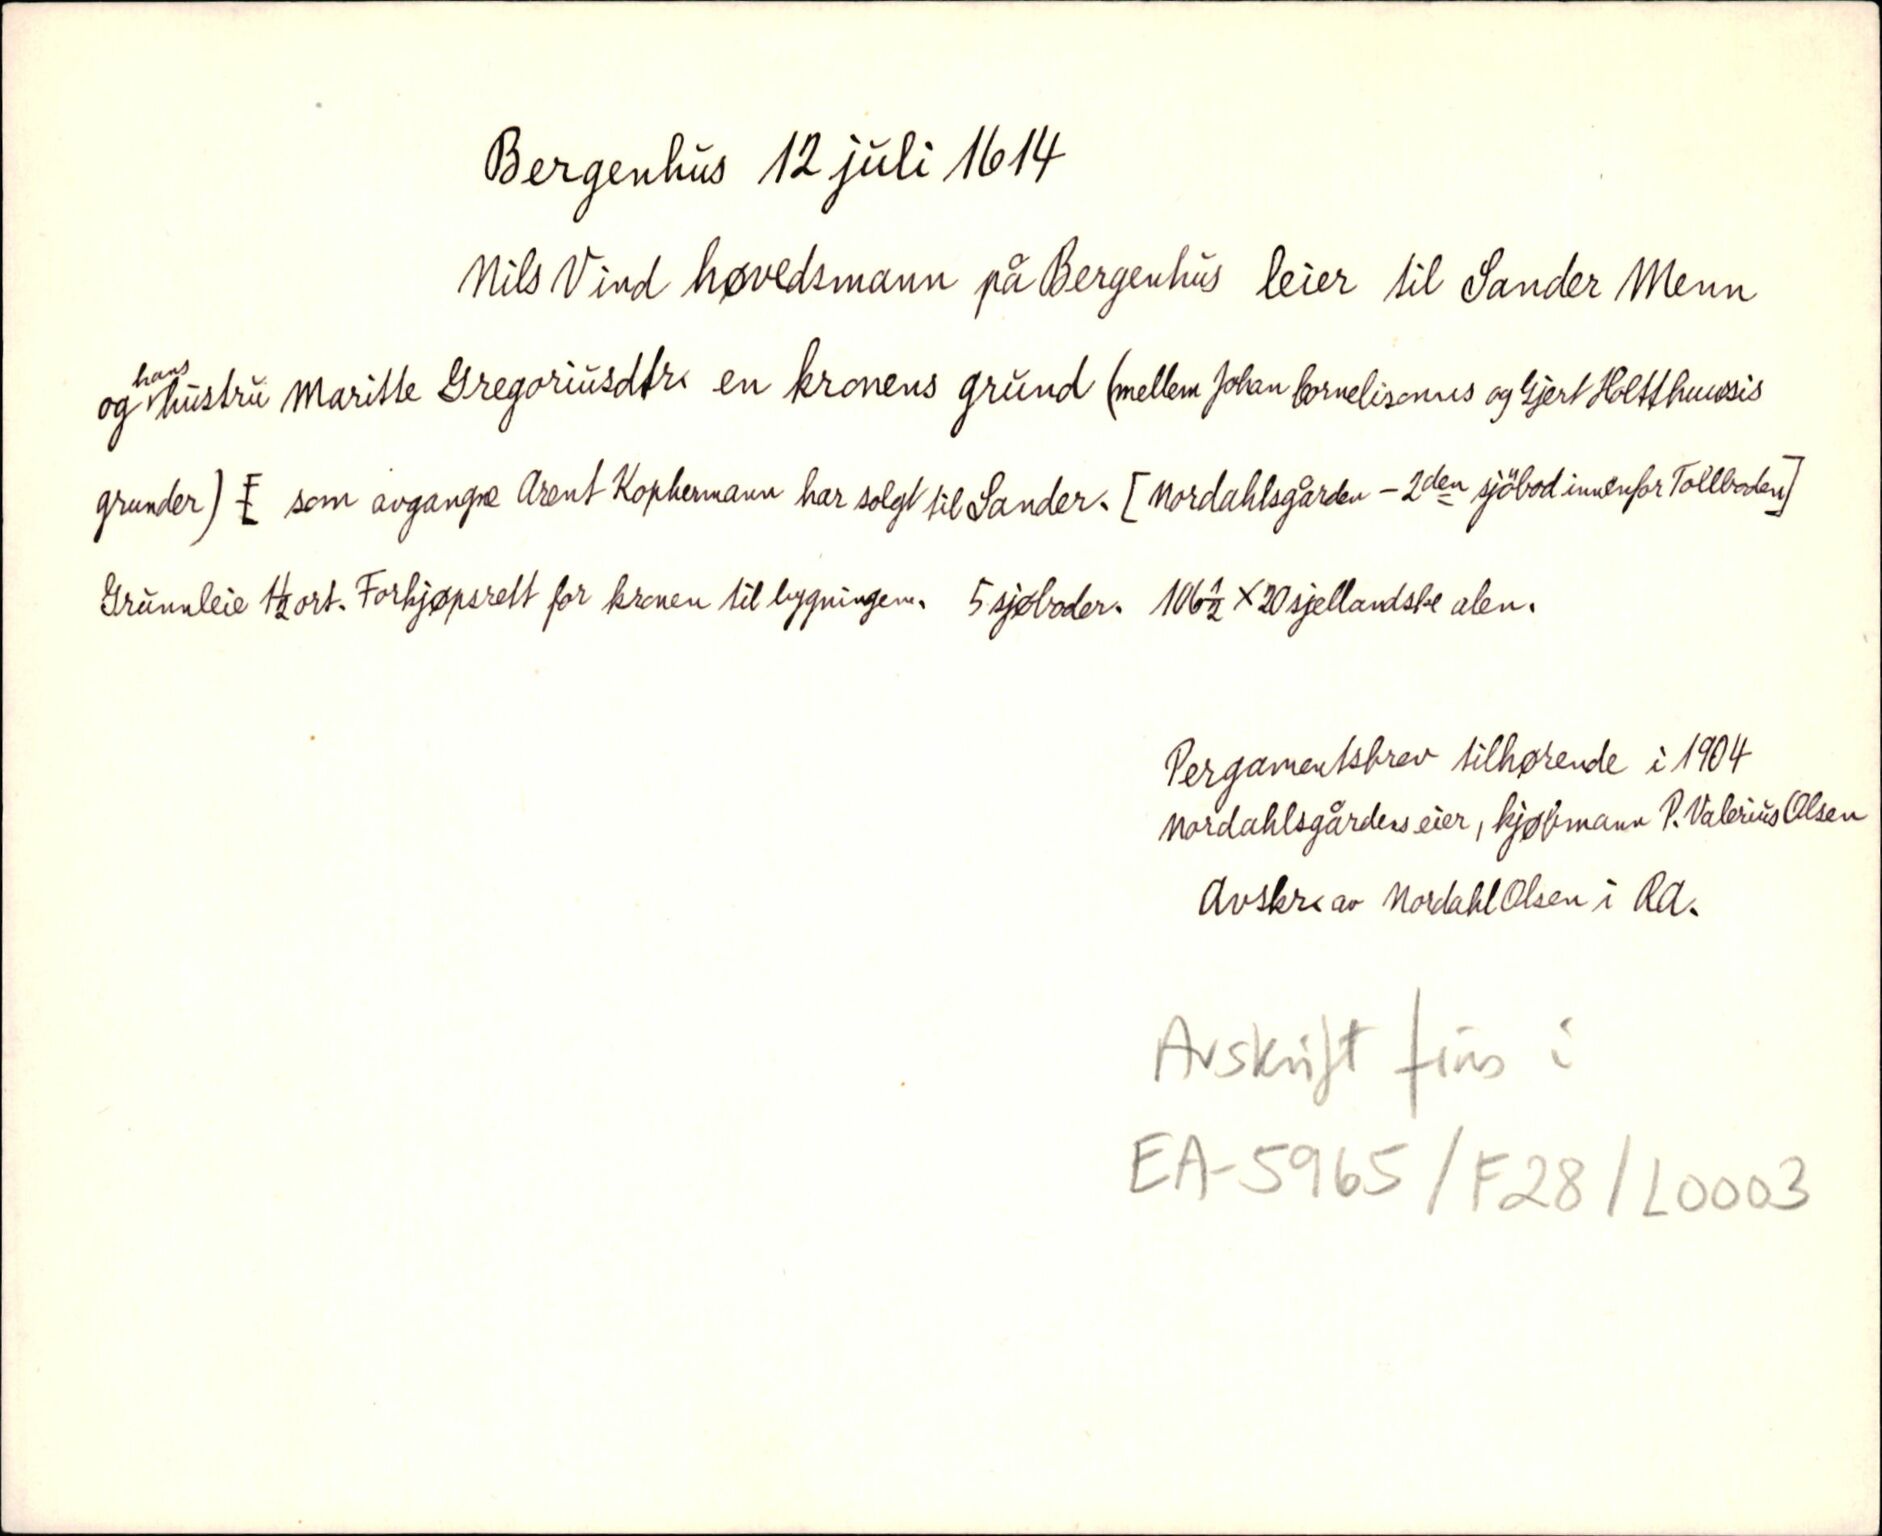 Bergenhus 12 juli 1614
Nils Vind høvedsmann på Bergenhus leier til Sander Menn
og hans hustru Maritte Gregoriusdtr. en kronens grund (mellem Johan Cornelisonns og Gjert Holtthuusis
grunder) som avgangne Arent Kophermann har solgt til Sander. [Nordahlsgården - 2den sjöbod innenfor Tollboden]
Grunnleie 1½ ort. Forkjøpsrett for kronen til bygningen. 5 sjøboder. 106½ × 20 sjellandske alen.
Pergamentsbrev tilhørende i 1904
Nordahlsgårdens eier, kjøbmann P. Valerius Olsen
Avskr. av Nordahl Olsen i RA.
Avskrift fins i
EA-5965/F28/L0003